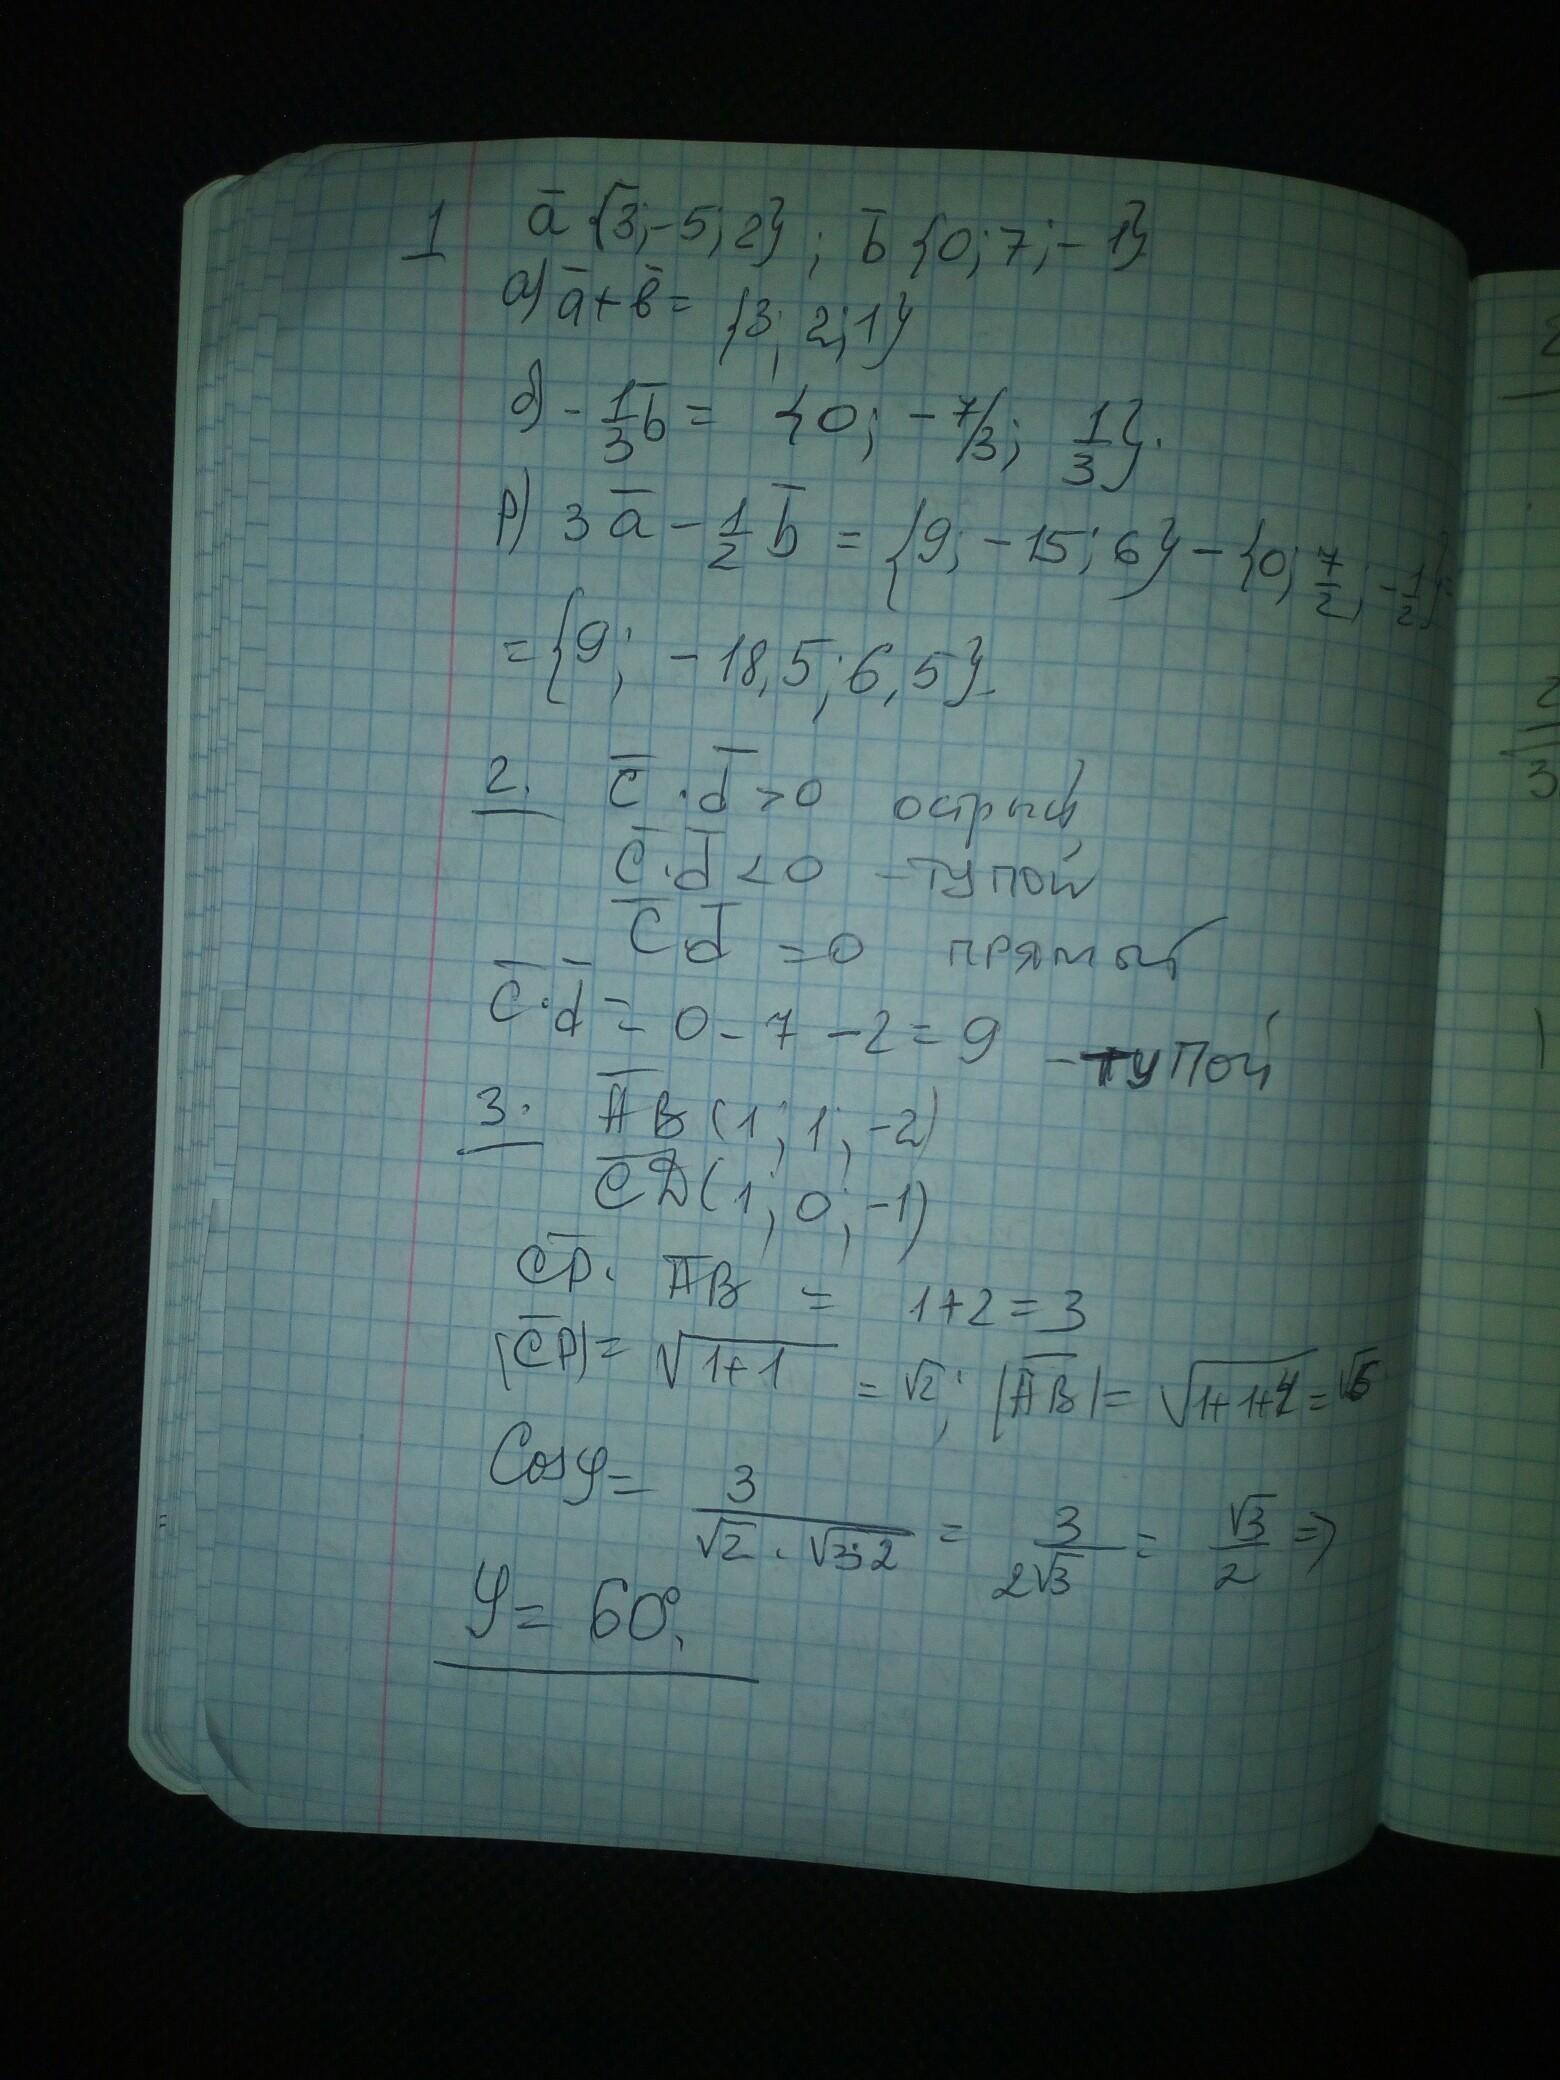 1 a̅ {3;-5;2} ; b̅ {0;7;-1}
а) a̅+b̅= {3; 2;1}
б) - 1/3 b̅ = {0; -7/3; 1/3}.
р) 3a̅ - 1/2 b̅ = {9; -15; 6} - {0; 7/2; -1/2}=
={9; -18,5; 6,5}
2. c̅ · d̅ > 0 острый
c̅·d̅ < 0 - тупой
c̅ d̅ = 0 прямой
c̅·d̅ = 0-7-2=9 - тупой
3. A̅B̅ (1; 1; -2)
C̅D̅ (1; 0; -1)
C̅D̅ · A̅B̅ = 1+2=3
|C̅D̅|= √1+1 = √2; |A̅B̅|= √1+1+4 = √6
Cosφ= 3/(√2 · √3·2) = 3/(2√3) = √3/2 =>
φ= 60°.
2
2
3